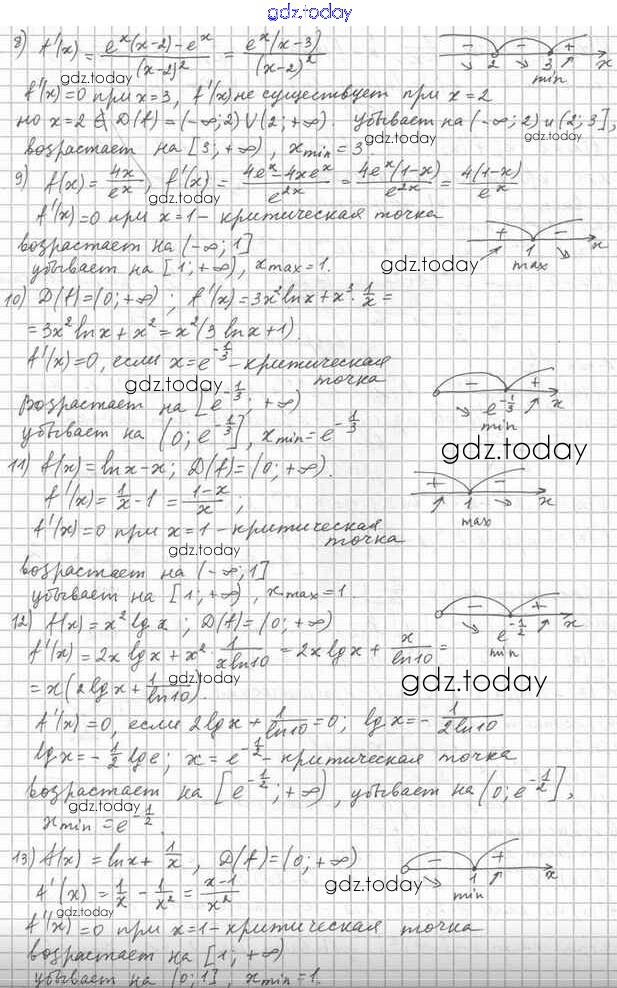 gdz.today
8) f'(x) = (e^x(x-2) - e^x)/(x-2)^2 = e^x(x-3)/(x-2)^2
- 2 - 3 + x
min
gdz.today
f'(x)=0 при x=3, f'(x) не существует при x=2
но x=2 ∉ D(f) = (-∞; 2) ∪ (2; +∞). убывает на (-∞; 2) и (2; 3],
gdz.today
gdz.today
возрастает на [3; +∞), x min = 3
9) f(x) = 4x/e^x, f'(x) = (4e^x - 4xe^x)/e^2x = 4e^x(1-x)/e^2x = 4(1-x)/e^x
gdz.today
f'(x)=0 при x=1 - критическая точка
+ 1 - x
max
возрастает на (-∞; 1]
убывает на [1; +∞), x max = 1.
gdz.today
10) D(f)=(0; +∞); f'(x)=3x^2 ln x + x^3 · 1/x =
= 3x^2 ln x + x^2 = x^2(3 ln x + 1).
f'(x)=0, если x = e^-1/3 - критическая
точка
gdz.today
- e^-1/3 + x
min
возрастает на [e^-1/3; +∞)
убывает на (0; e^-1/3], x min = e^-1/3
gdz.today
11) f(x) = ln x - x; D(f) = (0; +∞).
+ 1 - x
max
f'(x) = 1/x - 1 = (1-x)/x;
f'(x)=0 при x=1 - критическая
точка
gdz.today
возрастает на (-∞; 1]
убывает на [1; +∞), x max = 1.
12) f(x) = x^2 lg x; D(f) = (0; +∞)
- e^-1/2 + x
min
f'(x) = 2x lg x + x^2 · 1/(x ln 10) = 2x lg x + x/ln 10 =
gdz.today
= x(2 lg x + 1/ln 10).
f'(x)=0, если 2 lg x + 1/ln 10 = 0; lg x = - 1/(2 ln 10)
lg x = - 1/2 lg e; x = e^-1/2 - критическая точка
возрастает на [e^-1/2; +∞), убывает на (0; e^-1/2],
gdz.today
x min = e^-1/2.
13) f(x) = ln x + 1/x, D(f) = (0; +∞)
- 1 + x
min
gdz.today
f'(x) = 1/x - 1/x^2 = (x-1)/x^2
gdz.today
f'(x)=0 при x=1 - критическая точка
возрастает на [1; +∞)
убывает на (0; 1], x min = 1.